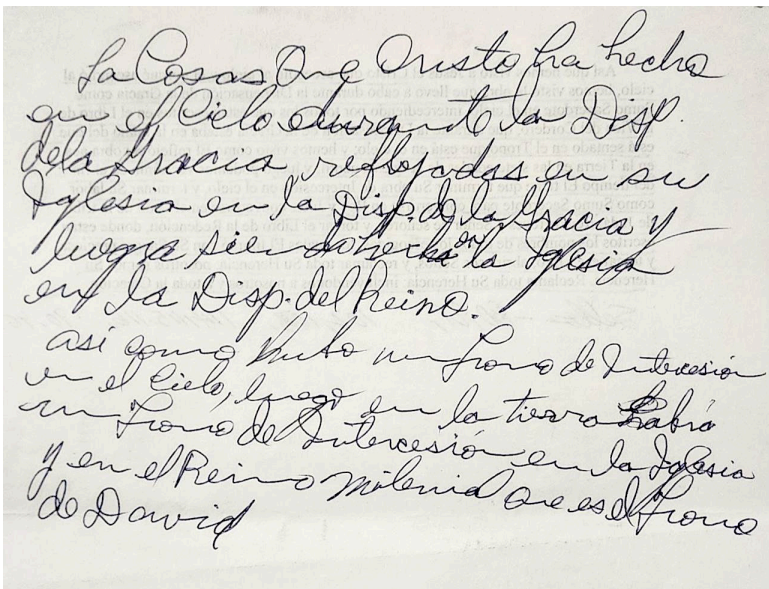 La Cosas Que Cristo ha hecho
en el Cielo durante la Disp.
de la Gracia, reflejadas en su
Iglesia en la Disp. de la Gracia y
luego siendo hecha en la Iglesia
en la Disp. del Reino.
así como hubo un trono de Intercesión
en el Cielo, luego en la tierra habrá
un trono de Intercesión en la Iglesia
y en el Reino Milenial que es el trono
de David